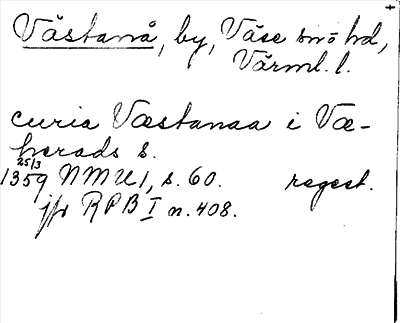 Västanå, by, Väse snö hd,
Värml. l.
curia Væstanaa i Væ-
herads s.
25/3
1359 NMU 1, s. 60. regest.
jfr RPB I n. 408.